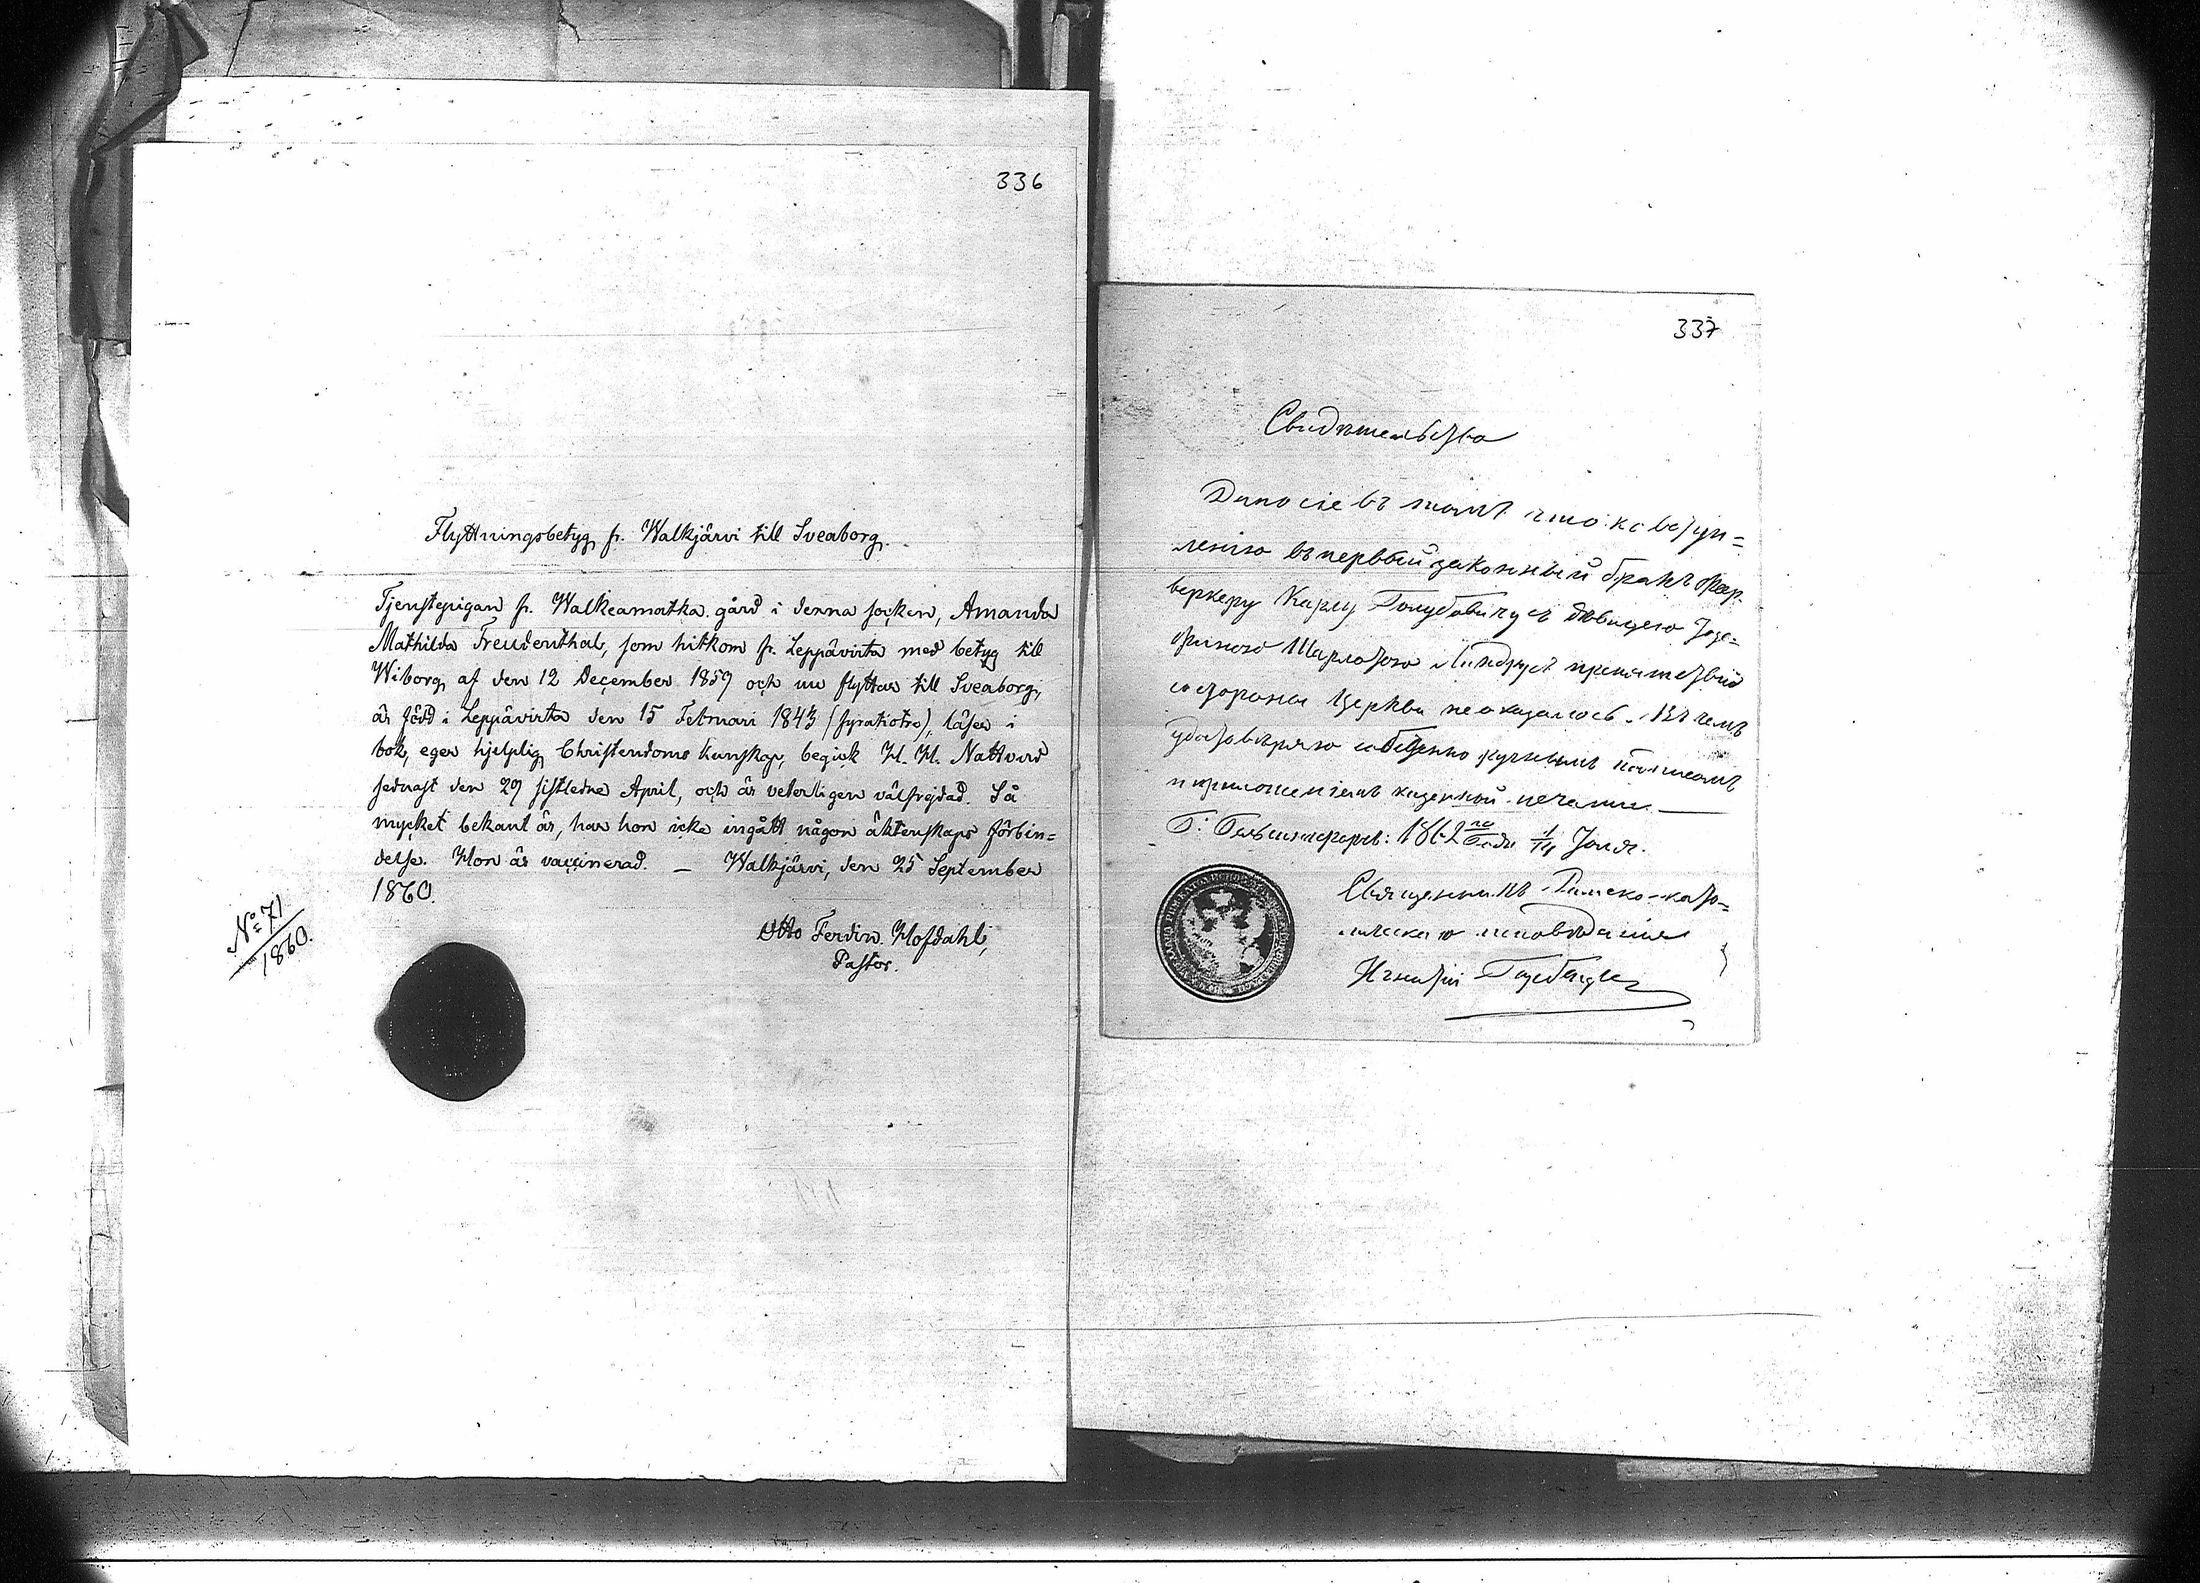 336
Flyttningsbetyg fr. Walkjärvi till Sveaborg.
Tjenstepigan fr. Walkeamatka gård i denna socken, Amanda
Mathilda Freudenthal, som hitkom fr. Leppävirta med betyg till
Wiborg af den 12 December 1859 och nu flyttar till Sveaborg,
är född i Leppävirta den 15 Februari 1843 (fyratiotre), läser i
bok, eger hjelplig Christendoms kunskap, begick H. H. Nattvard
sednast den 29 sistledne April, och är veterligen välfrejdad. Så
mycket bekant är, har hon icke ingått någon äktenskaps förbin=
delse. Hon är vaccinerad. — Walkjärvi, den 25 September
1860.
Otto Ferdin. Hofdahl,
Pastor.
No 71
1860.
337
Свидѣтельство
Дано сіе въ томъ что ко вступ=
ленію въ первый законный бракъ Феер-
веркеру Карлу Голубовичу съ дѣвицею Жозе-
финою Шарлотою Линдрусъ препятствій
со стороны Церкви не оказалось. Въ чемъ
удостовѣряю собственно ручнымъ
и приложеніемъ казенной печати. —
Г: Гельсингфорсъ: 1862 го года 1/14 Юля.
Священникъ Римско-като=
лическаго исповѣданія
Игнатій